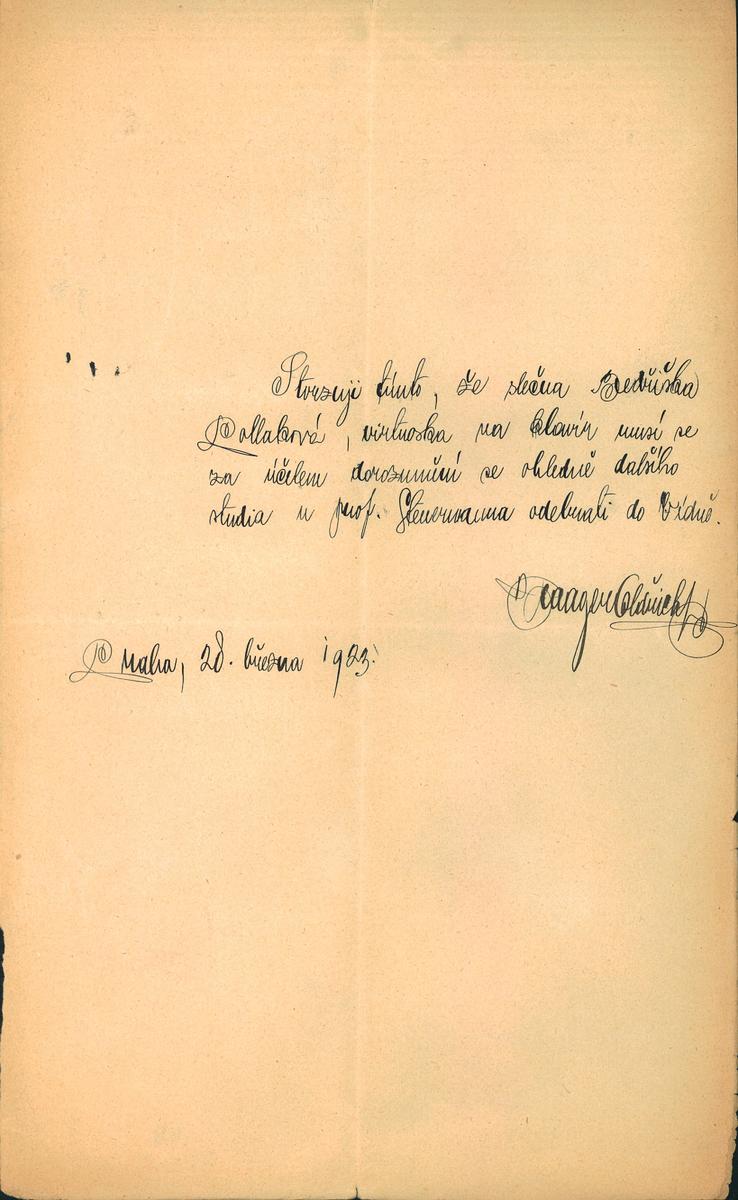 Stvrzuji tímto, že slečna Bedřiška
Pollaková, virtuoska na klavír musí se
za účelem dorozumění se ohledně dalšího
studia u prof. Steuermanna odebrati do Vídně.
Oldřich
Praha, 28. března 1923.